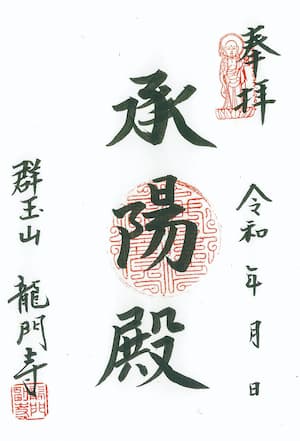 奉拝
令和 年 月 日
承陽殿
群玉山 龍門寺